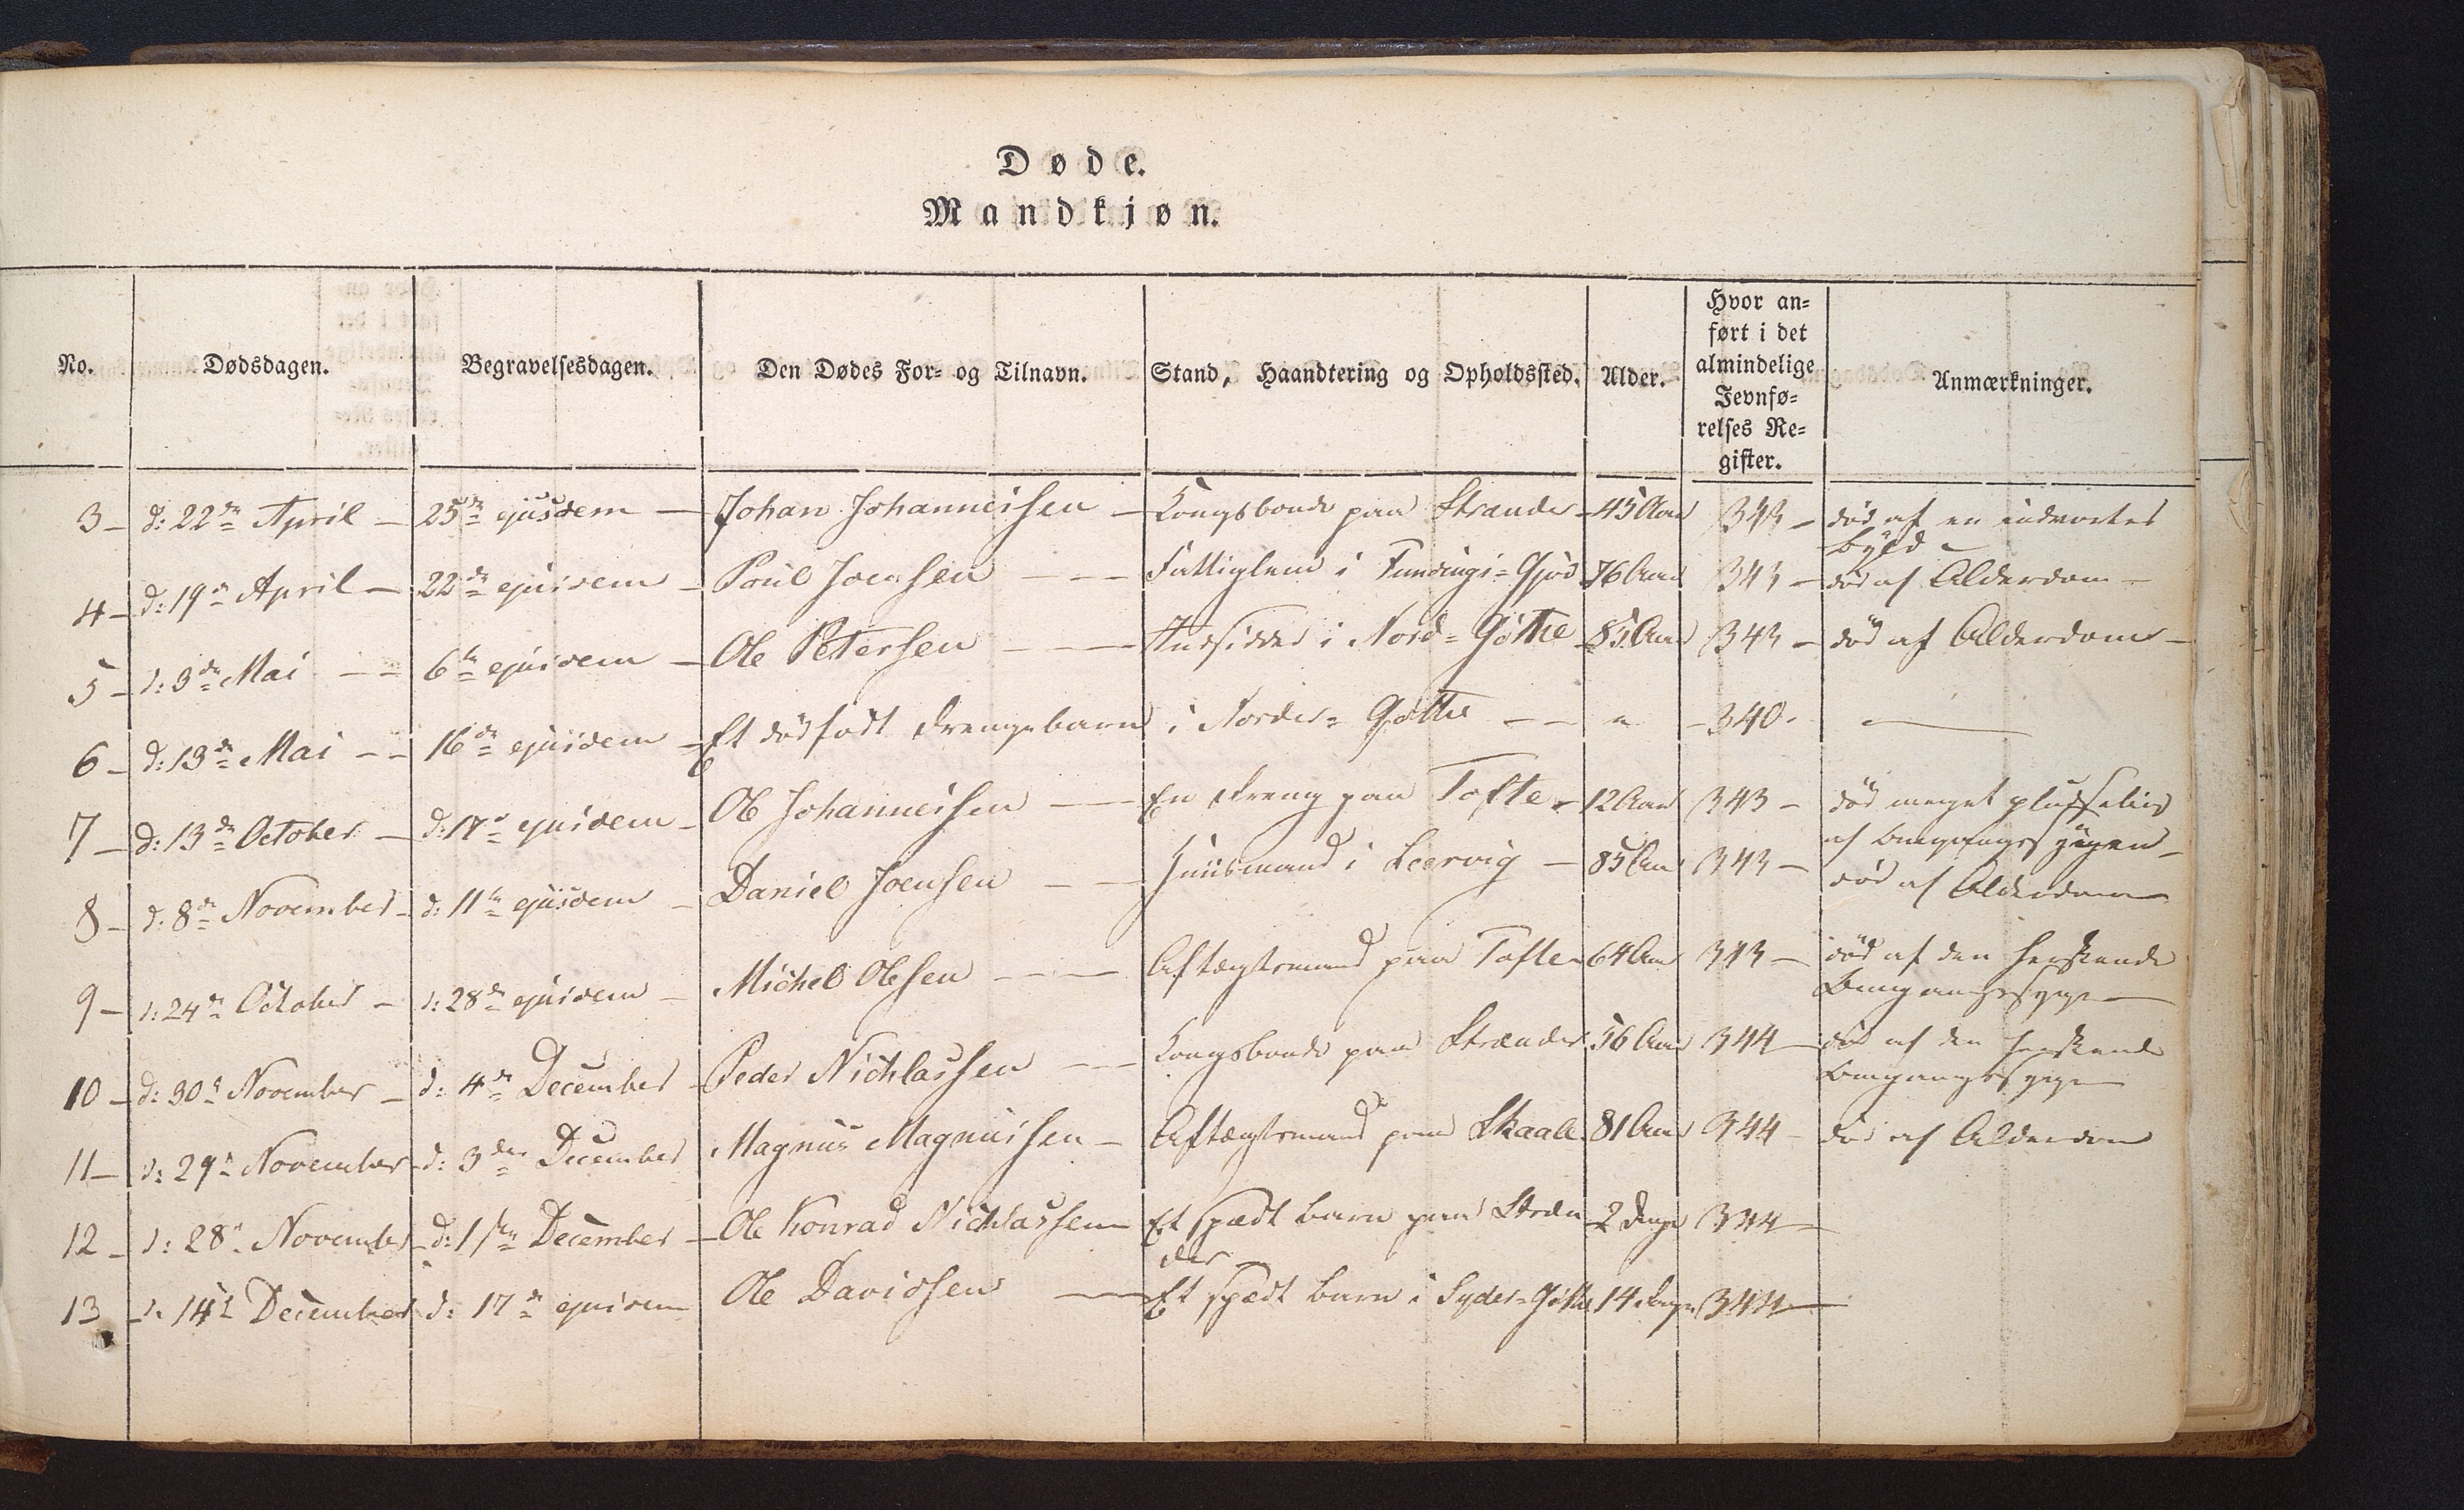 Døde.
Mandkjøn.
No. Dødsdagen. Begravelsesdagen. Den Dødes For- og Tilnavn. Stand, Haandtering og Opholdssted. Alder. Hvor an-
ført i det
almindelige
Jevnfø-
relses Re-
gister. Anmærkninger.
3 - d: 22de April - 25de ejusdem - Johan Johannessen - Kongsbonde paa Strænder - 45 Aar 343 - død af en indvortes
Byld -
4 - d: 19de April - 22de ejusdem - Poul Joensen - - - Fattiglem i Fundings-Gjod 76 Aar 343 - død af Alderdom -
5 - d: 3de Mai - - 6te ejusdem - Ole Petersen - - - Indsidder i Nord-Gøthe 85 Aar 343 - død af Alderdom -
6 - d: 13de Mai - - 16de ejusdem - Et dødfødt Drengebarn i Norder-Gøthe - - " - 340. -
7 - d: 13de October - d: 17de ejusdem - Ole Johannessen - - En Dreng paa Tofte - 12 Aar 343 - død meget pludselig
af Omgangssygen -
8 - d: 8de November - d: 11te ejusdem - Daniel Joensen - - Huusmand i Leervig - 85 Aar 343 - død af Alderdom
9 - d: 24de October - d: 28de ejusdem - Michel Olesen - - - Aftægtsmand paa Tofte - 64 Aar 343 - død af den herskende
Omgangssyge -
10 - d: 30te November - d: 4de December - Peder Nichlassen - - - Kongsbonde paa Strænder 56 Aar 344 - død af den herskende
Omgangssyge
11 - d: 29de November - d: 3die December Magnus Magnussen - Aftægtsmand paa Skaale 81 Aar 344 - død af Alderdom
12 - d: 28de November - d: 1ste December - Ole Konrad Nichlassen Et spædt Barn paa Stræn- 2 Dage 344 -
der
13 - d. 14de December d: 17de ejusdem Ole Davidsen - Et spædt Barn i Syder-Gøthe 14 Dage 344 -